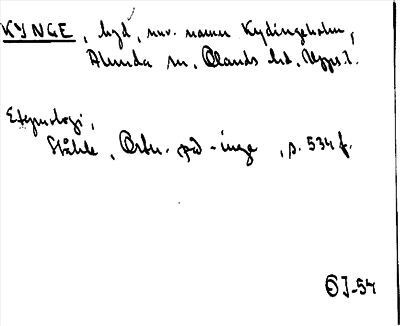 KYNGE, bygd, nuv. namn Kydingeholm,
Alunda sn, Olands hd, Upps. l.
Etymologi,
Ståhle, Ortn. på -inge, s. 534 f.
OJ-54